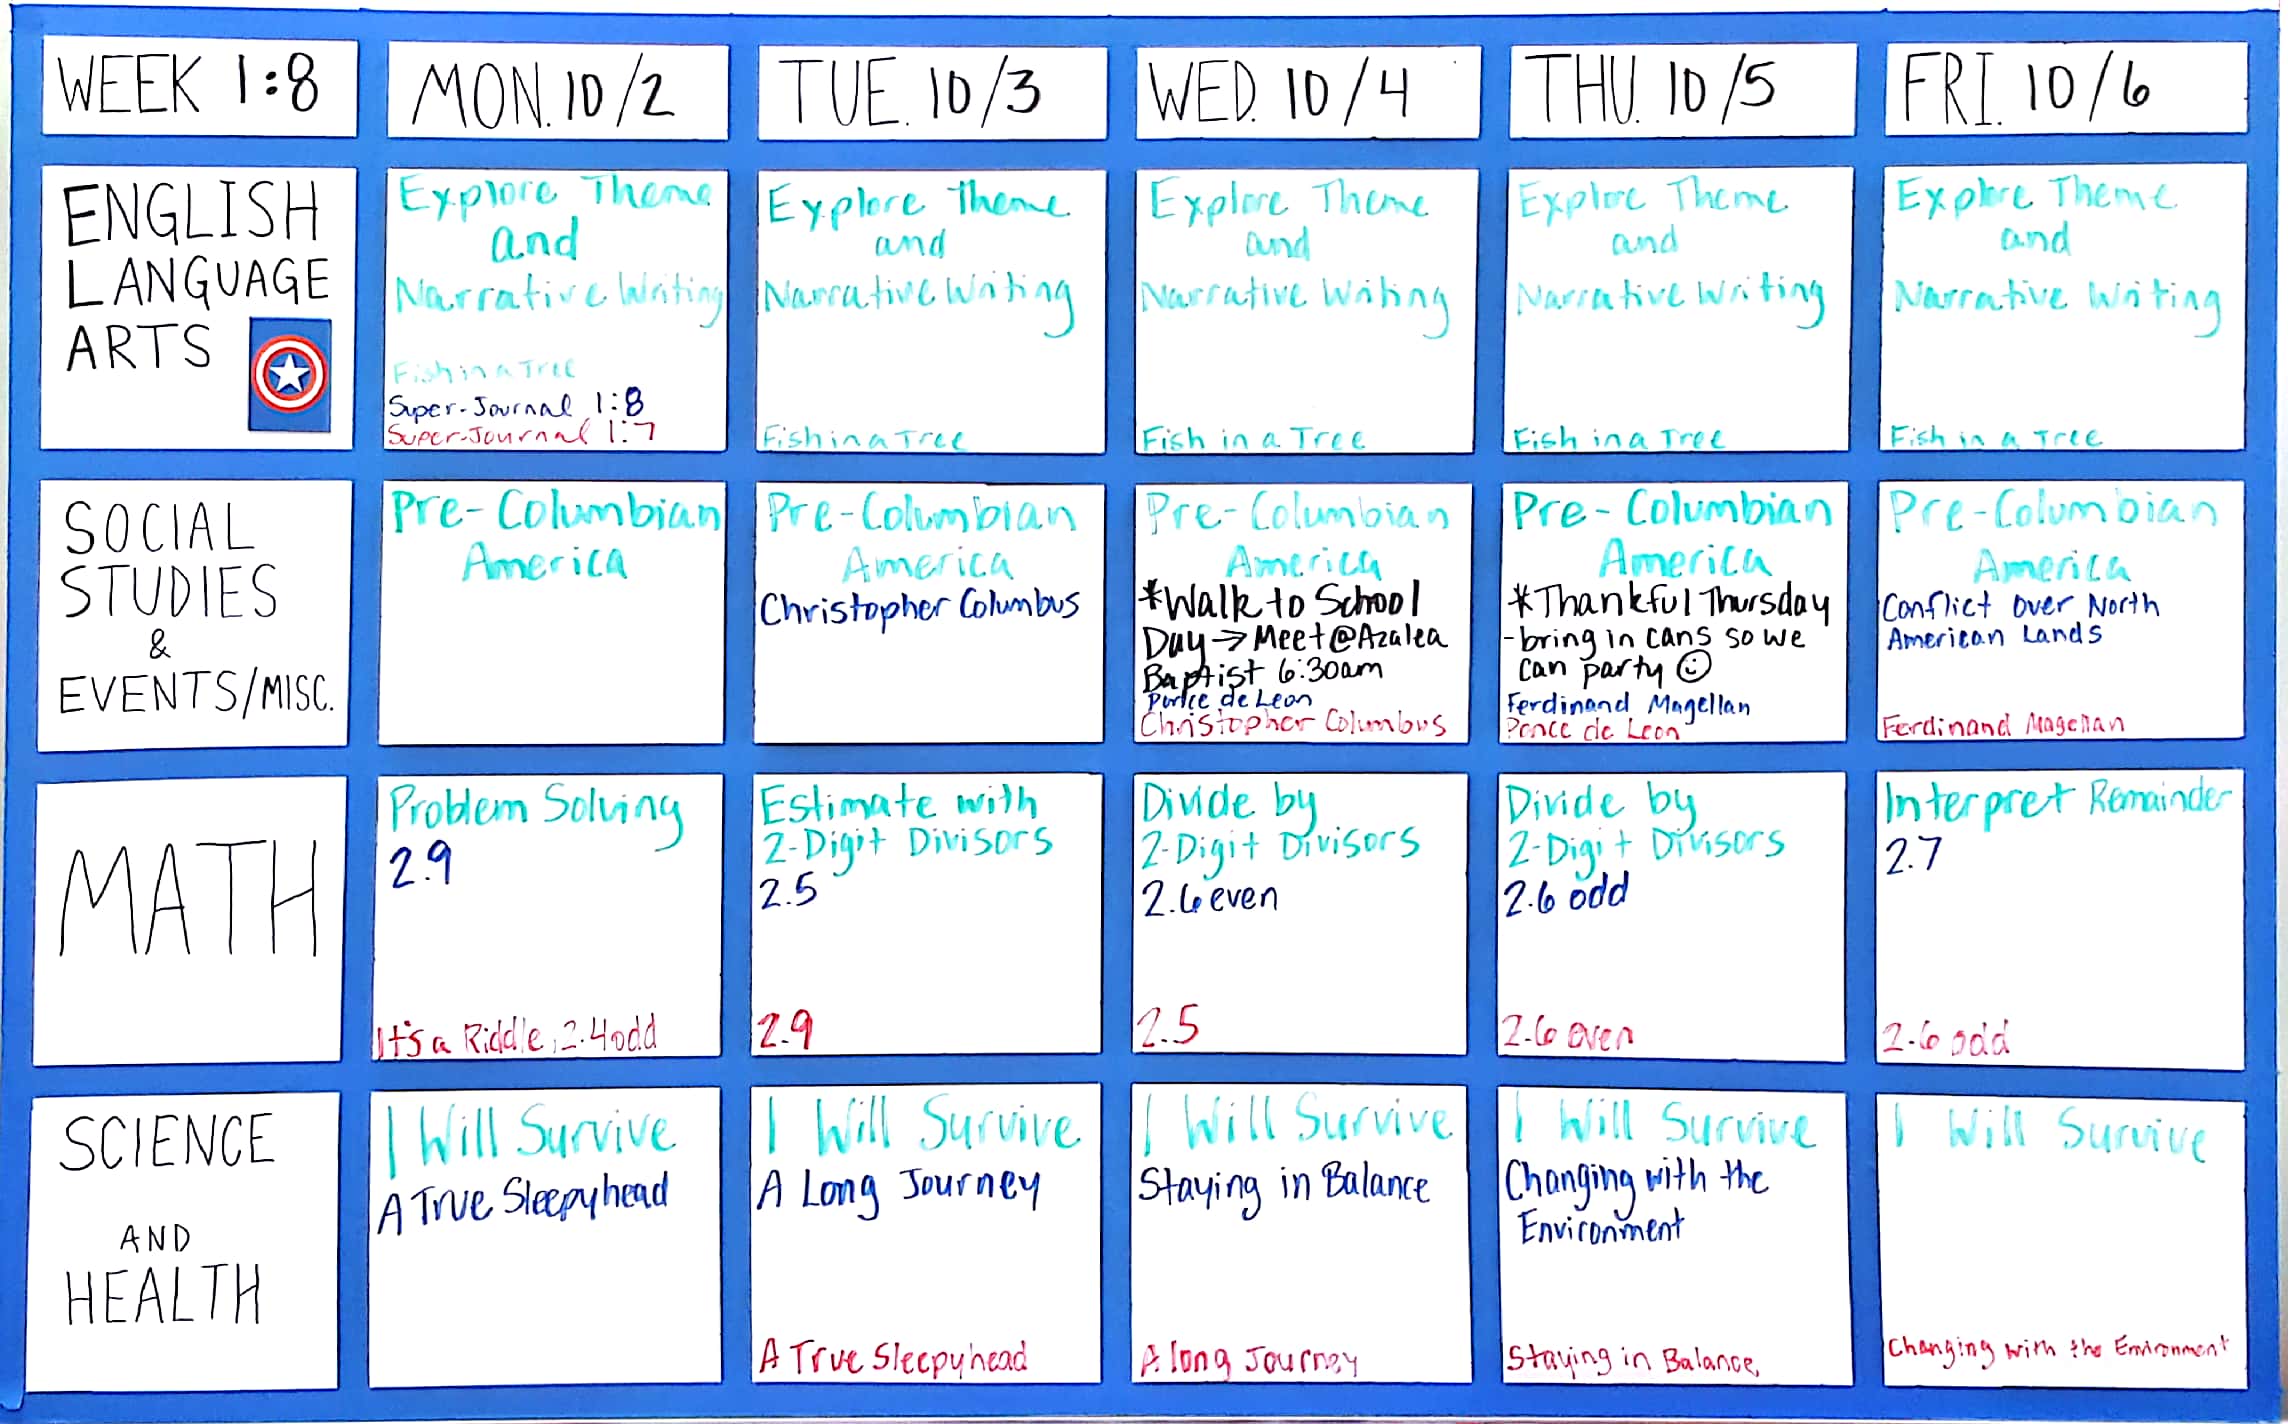 WEEK 1:8
MON. 10/2
TUE. 10/3
WED. 10/4
THU. 10/5
FRI. 10/6
ENGLISH
LANGUAGE
ARTS
Explore Theme
and
Narrative Writing
Fish in a Tree
Super-Journal 1:8
Super-Journal 1:7
Explore Theme
and
Narrative Writing
Fish in a Tree
Explore Theme
and
Narrative Writing
Fish in a Tree
Explore Theme
and
Narrative Writing
Fish in a Tree
Explore Theme
and
Narrative Writing
Fish in a Tree
SOCIAL
STUDIES
&
EVENTS/MISC.
Pre-Columbian
America
Pre-Columbian
America
Christopher Columbus
Pre-Columbian
America
*Walk to School
Day → Meet@Azalea
Baptist 6:30am
Ponce de Leon
Christopher Columbus
Pre-Columbian
America
*Thankful Thursday
-bring in cans so we
can party ☺
Ferdinand Magellan
Ponce de Leon
Pre-Columbian
America
Conflict over North
American Lands
Ferdinand Magellan
MATH
Problem Solving
2.9
It's a Riddle, 2.4 odd
Estimate with
2-Digit Divisors
2.5
2.9
Divide by
2-Digit Divisors
2.6 even
2.5
Divide by
2-Digit Divisors
2.6 odd
2.6 even
Interpret Remainder
2.7
2.6 odd
SCIENCE
AND
HEALTH
I Will Survive
A True Sleepyhead
I Will Survive
A Long Journey
A True Sleepyhead
I Will Survive
Staying in Balance
A long Journey
I Will Survive
Changing with the
Environment
Staying in Balance
I Will Survive
Changing with the Environment